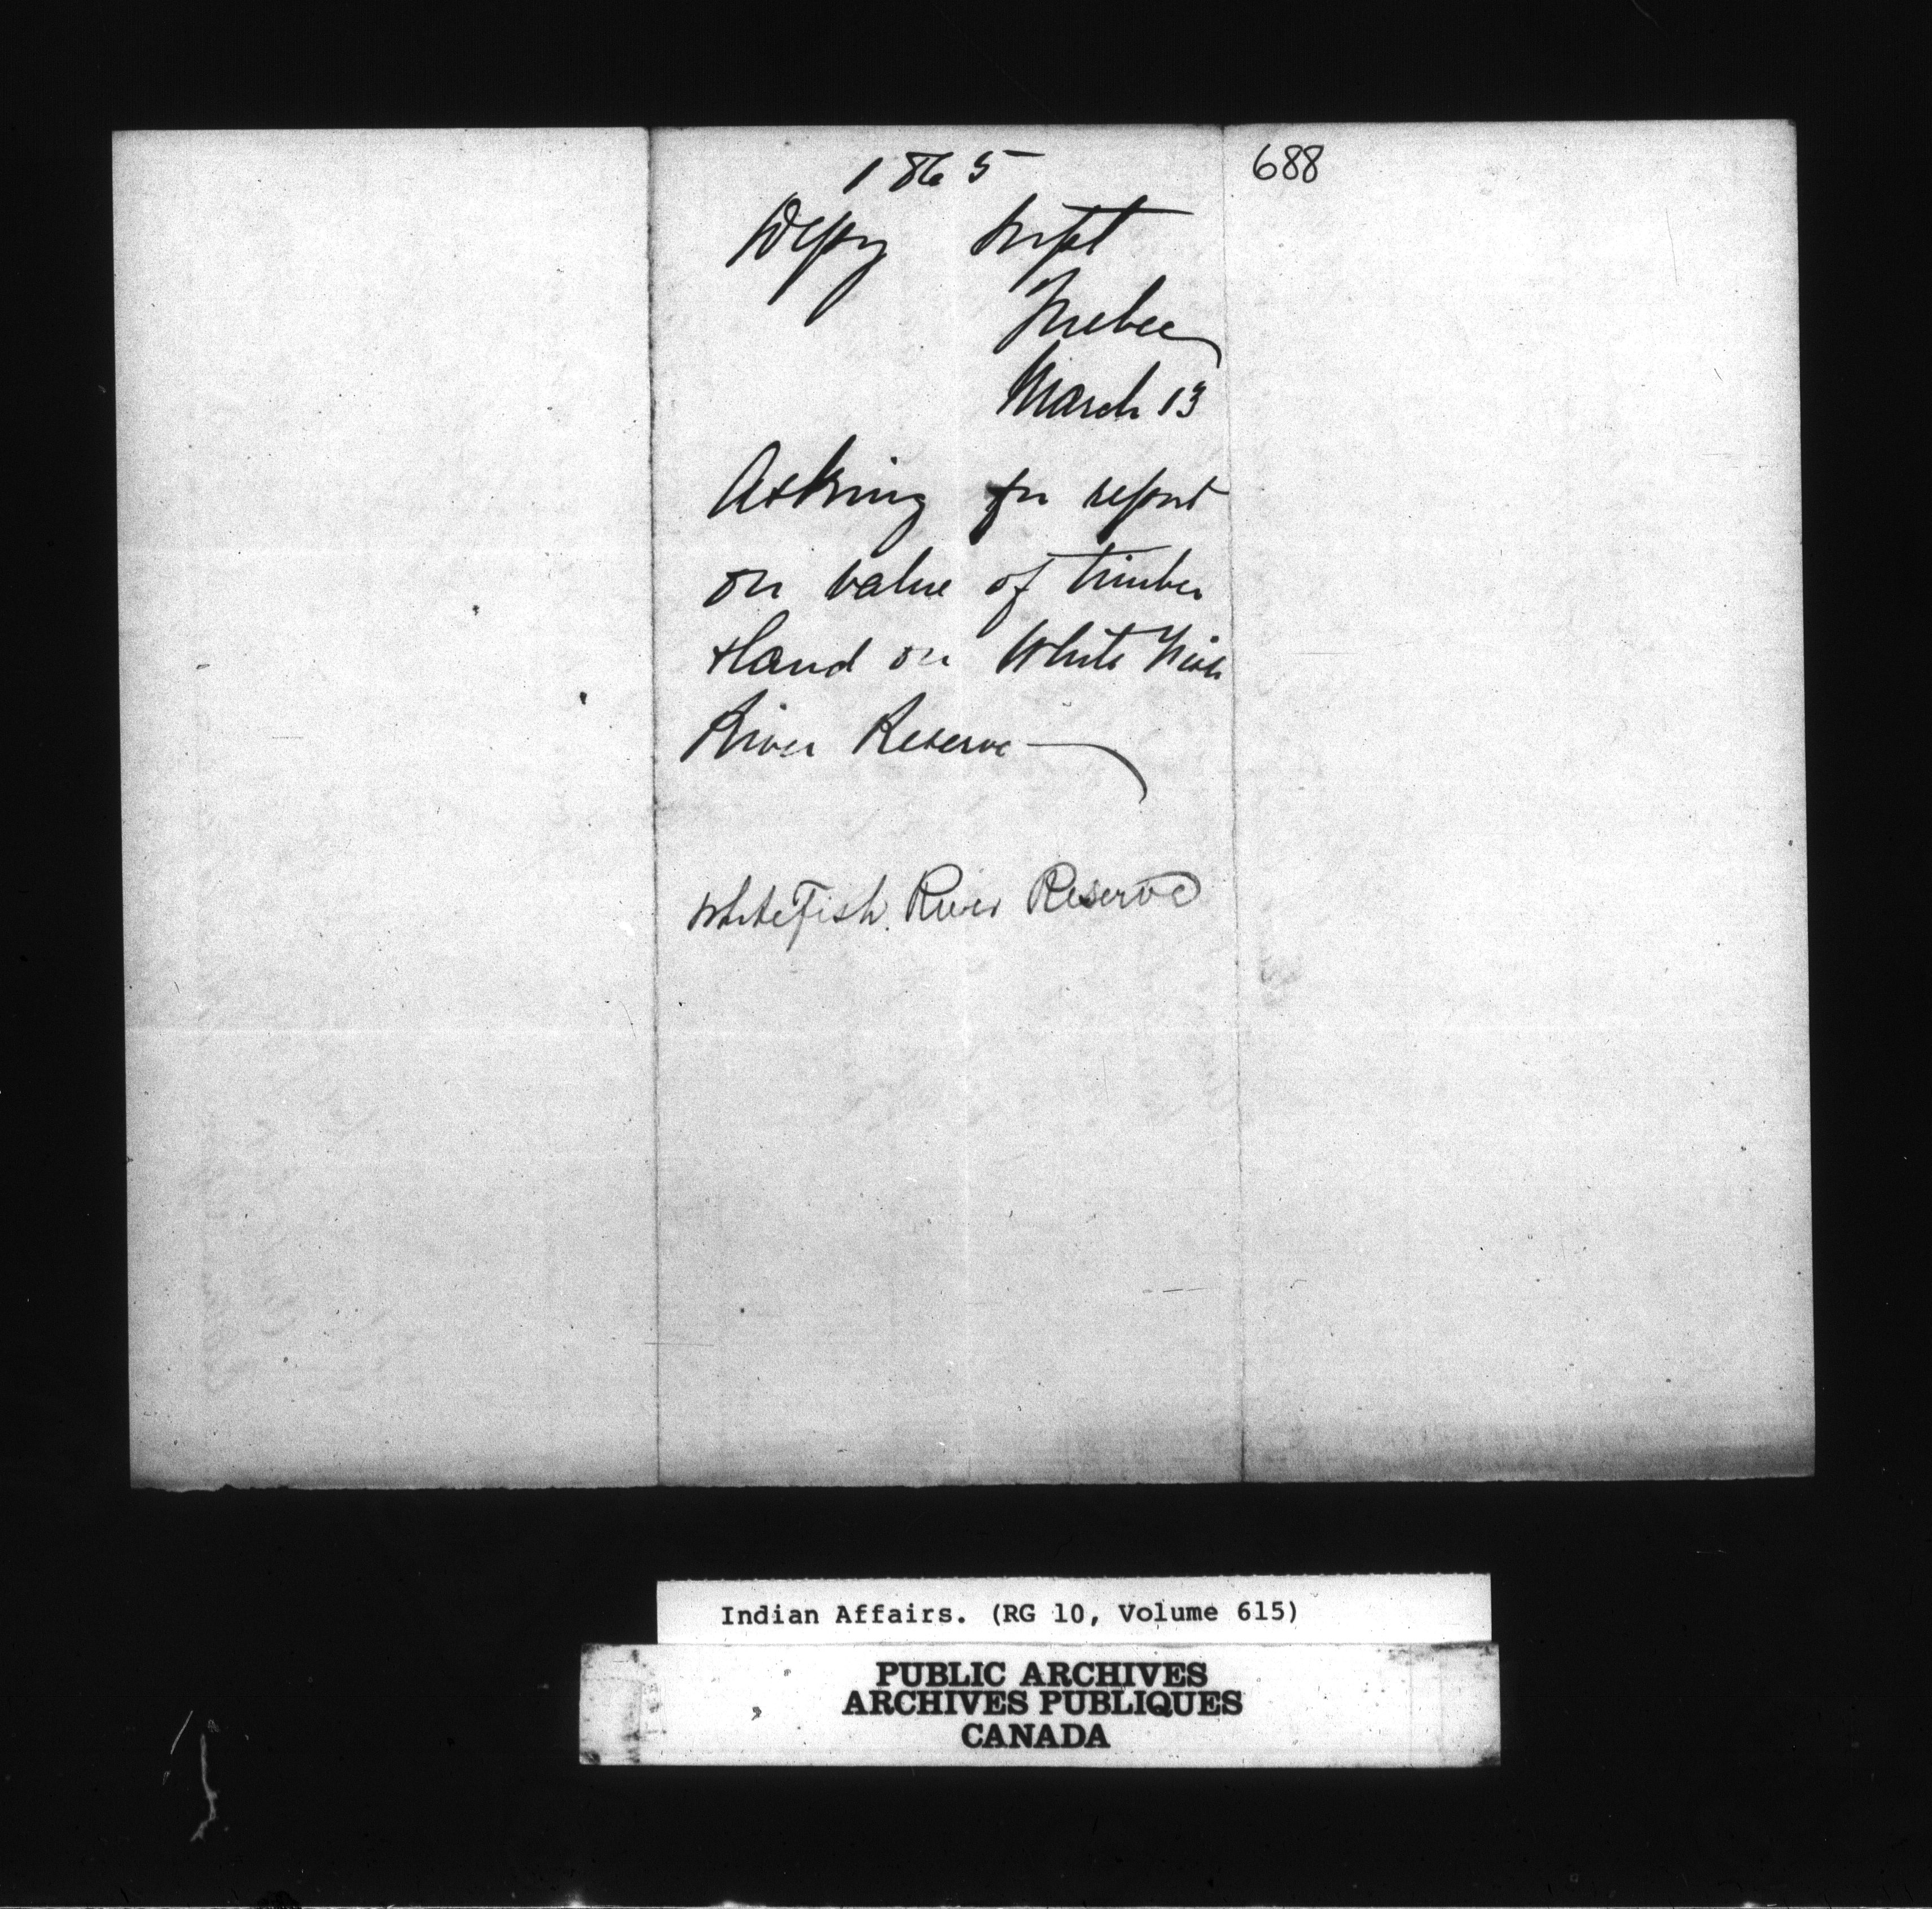 1865
Depy Supt
Quebec
March 13
Asking for report
on value of timber
& land on White Fish
River Reserve
White Fish River Reserve
688
Indian Affairs. (RG 10, Volume 615)
PUBLIC ARCHIVES
ARCHIVES PUBLIQUES
CANADA